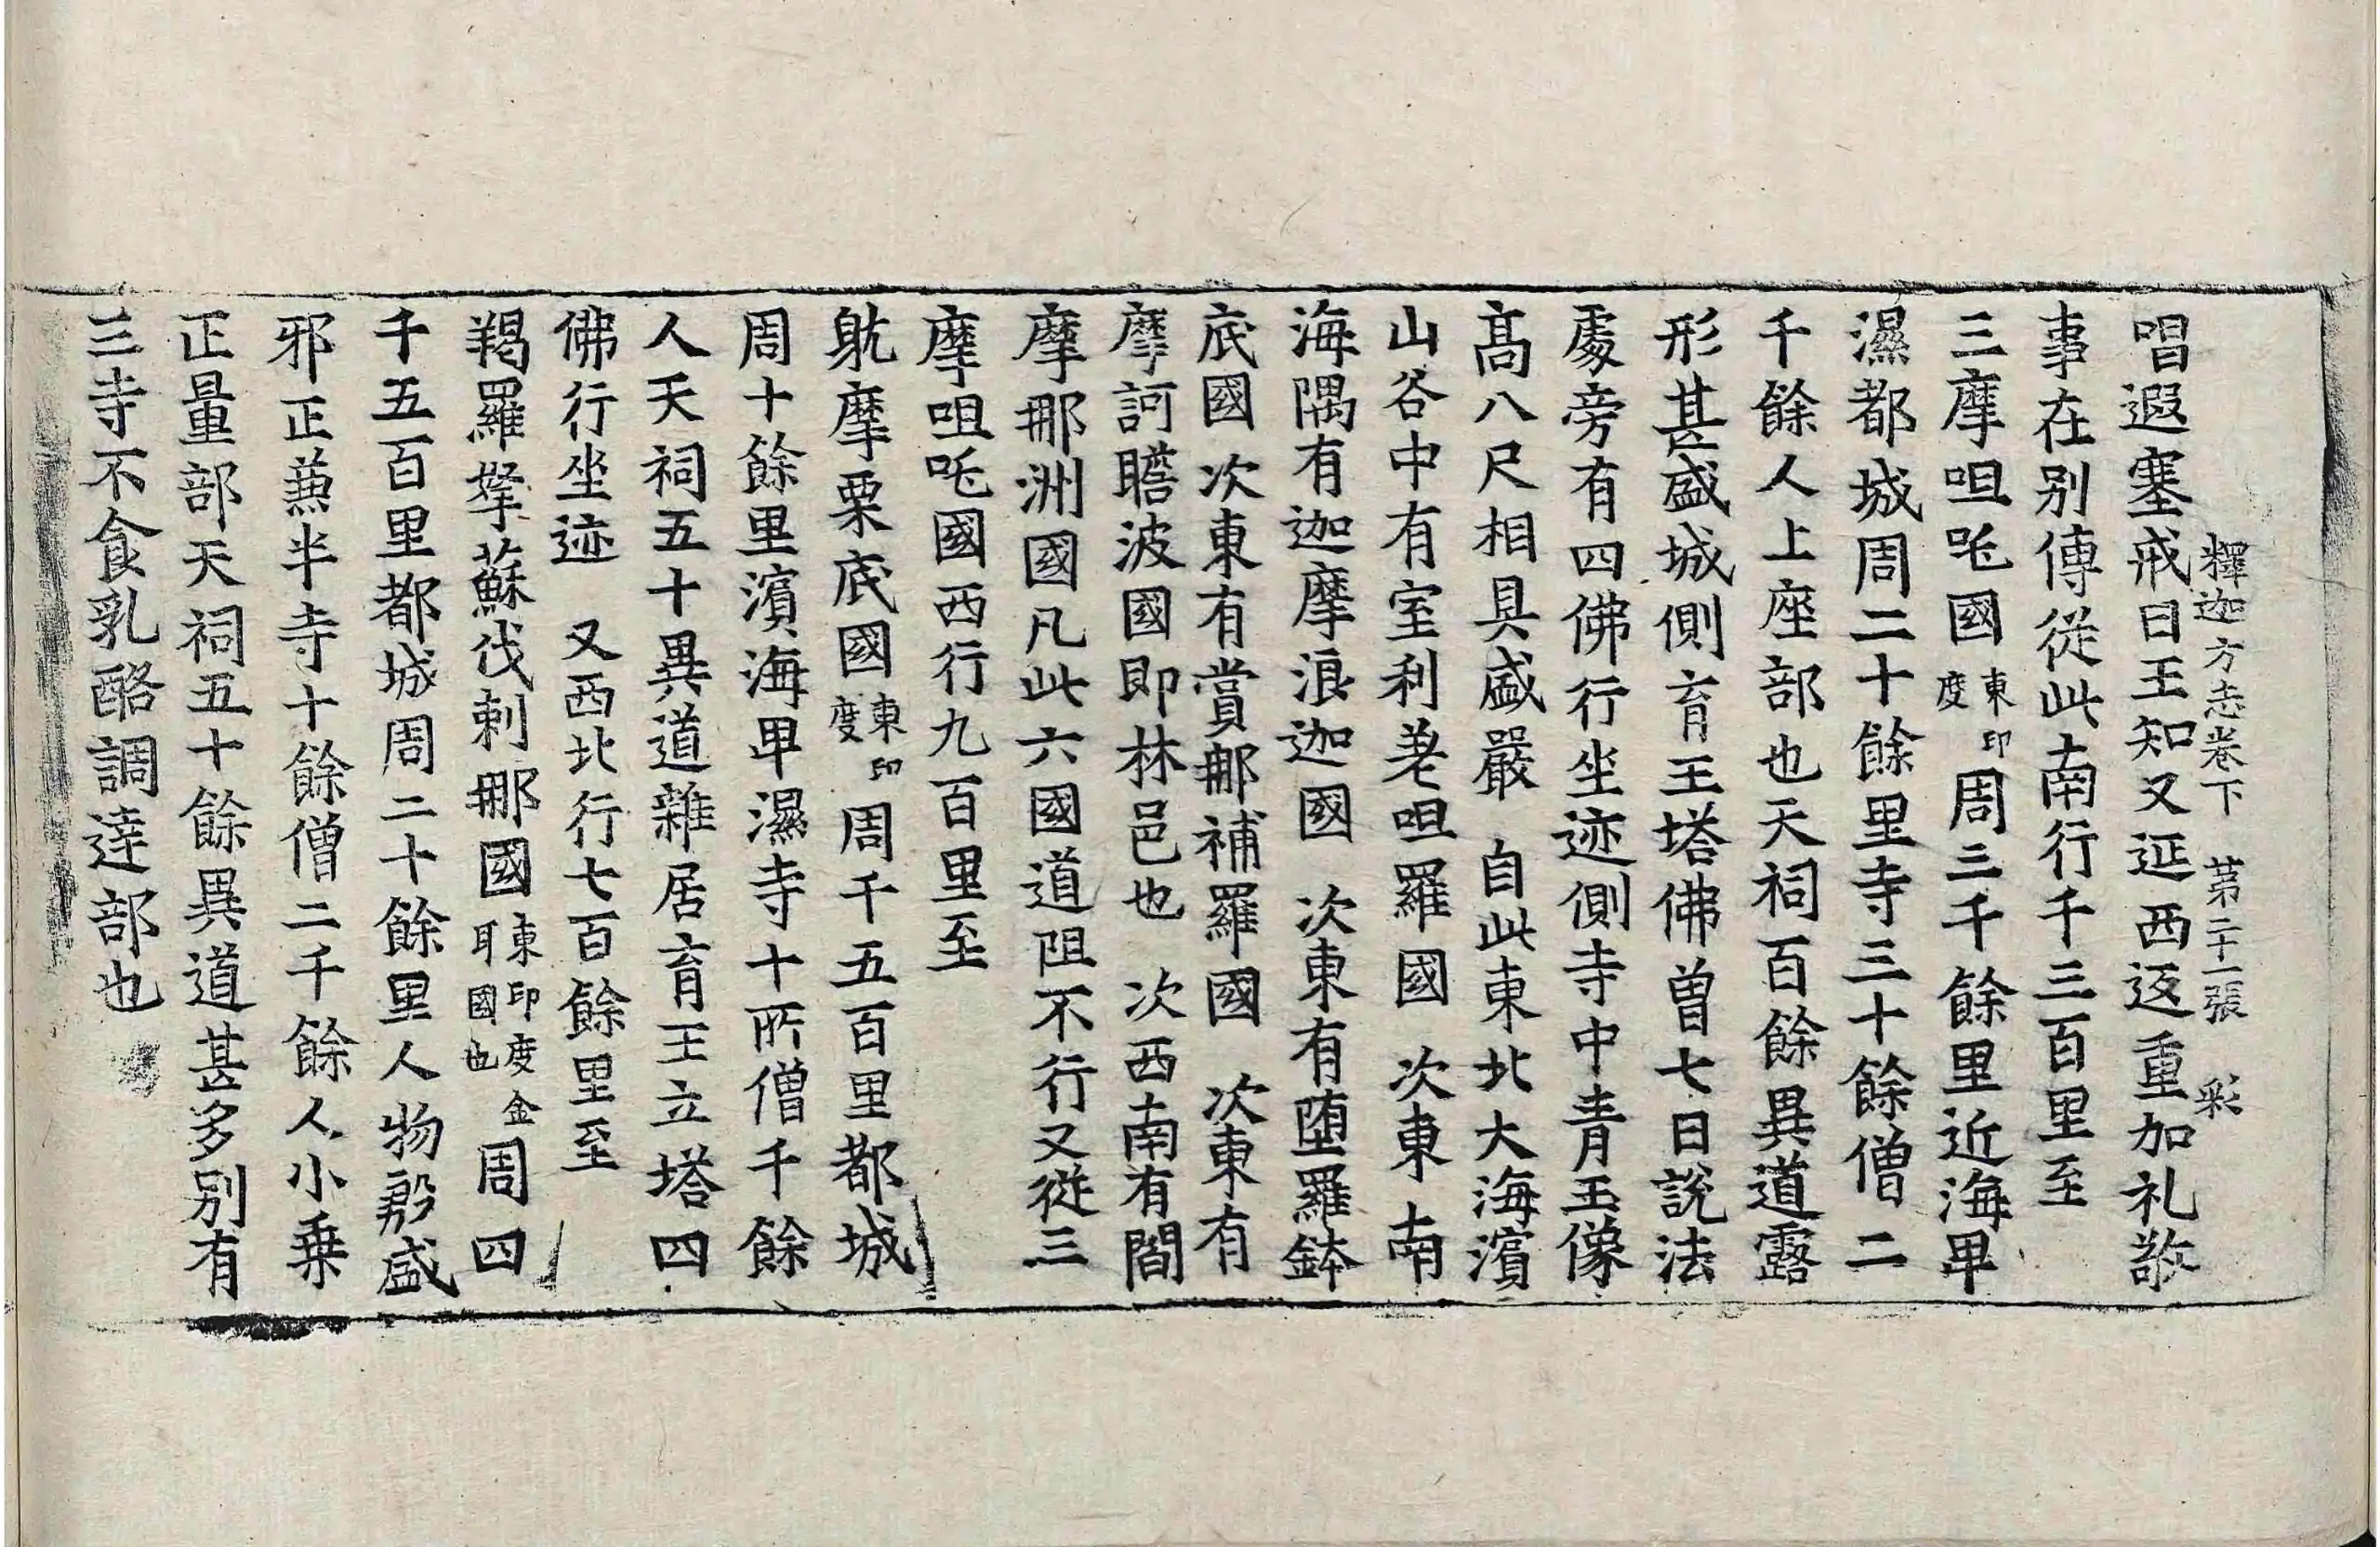 釋迦方志卷下　苐二十一張　彩
唱遐塞戒日王知又延西返重加礼敬
事在别傳從此南行千三百里至
三摩呾吒國東印度周三千餘里近海卑
濕都城周二十餘里寺三十餘僧二
千餘人上座部也天祠百餘異道露
形甚盛城側育王塔佛曽七日說法
處旁有四佛行坐迹側寺中青玉像
髙八尺相具盛嚴　自此東北大海濱
山谷中有室利差呾羅國　次東南
海隅有迦摩浪迦國　次東有堕羅鉢
底國　次東有賞那補羅國　次東有
摩訶瞻波國即林邑也　次西南有閻
摩那洲國凡此六國道阻不行又從三
摩呾吒國西行九百里至
躭摩栗底國東印度周千五百里都城
周十餘里濱海卑濕寺十所僧千餘
人天祠五十異道雜居育王立塔四
佛行坐迹　又西北行七百餘里至
羯羅拏蘇伐剌那國東印度金耳國也周四
千五百里都城周二十餘里人物殷盛
邪正兼半寺十餘僧二千餘人小乗
正量部天祠五十餘異道甚多别有
三寺不食乳酪調達部也